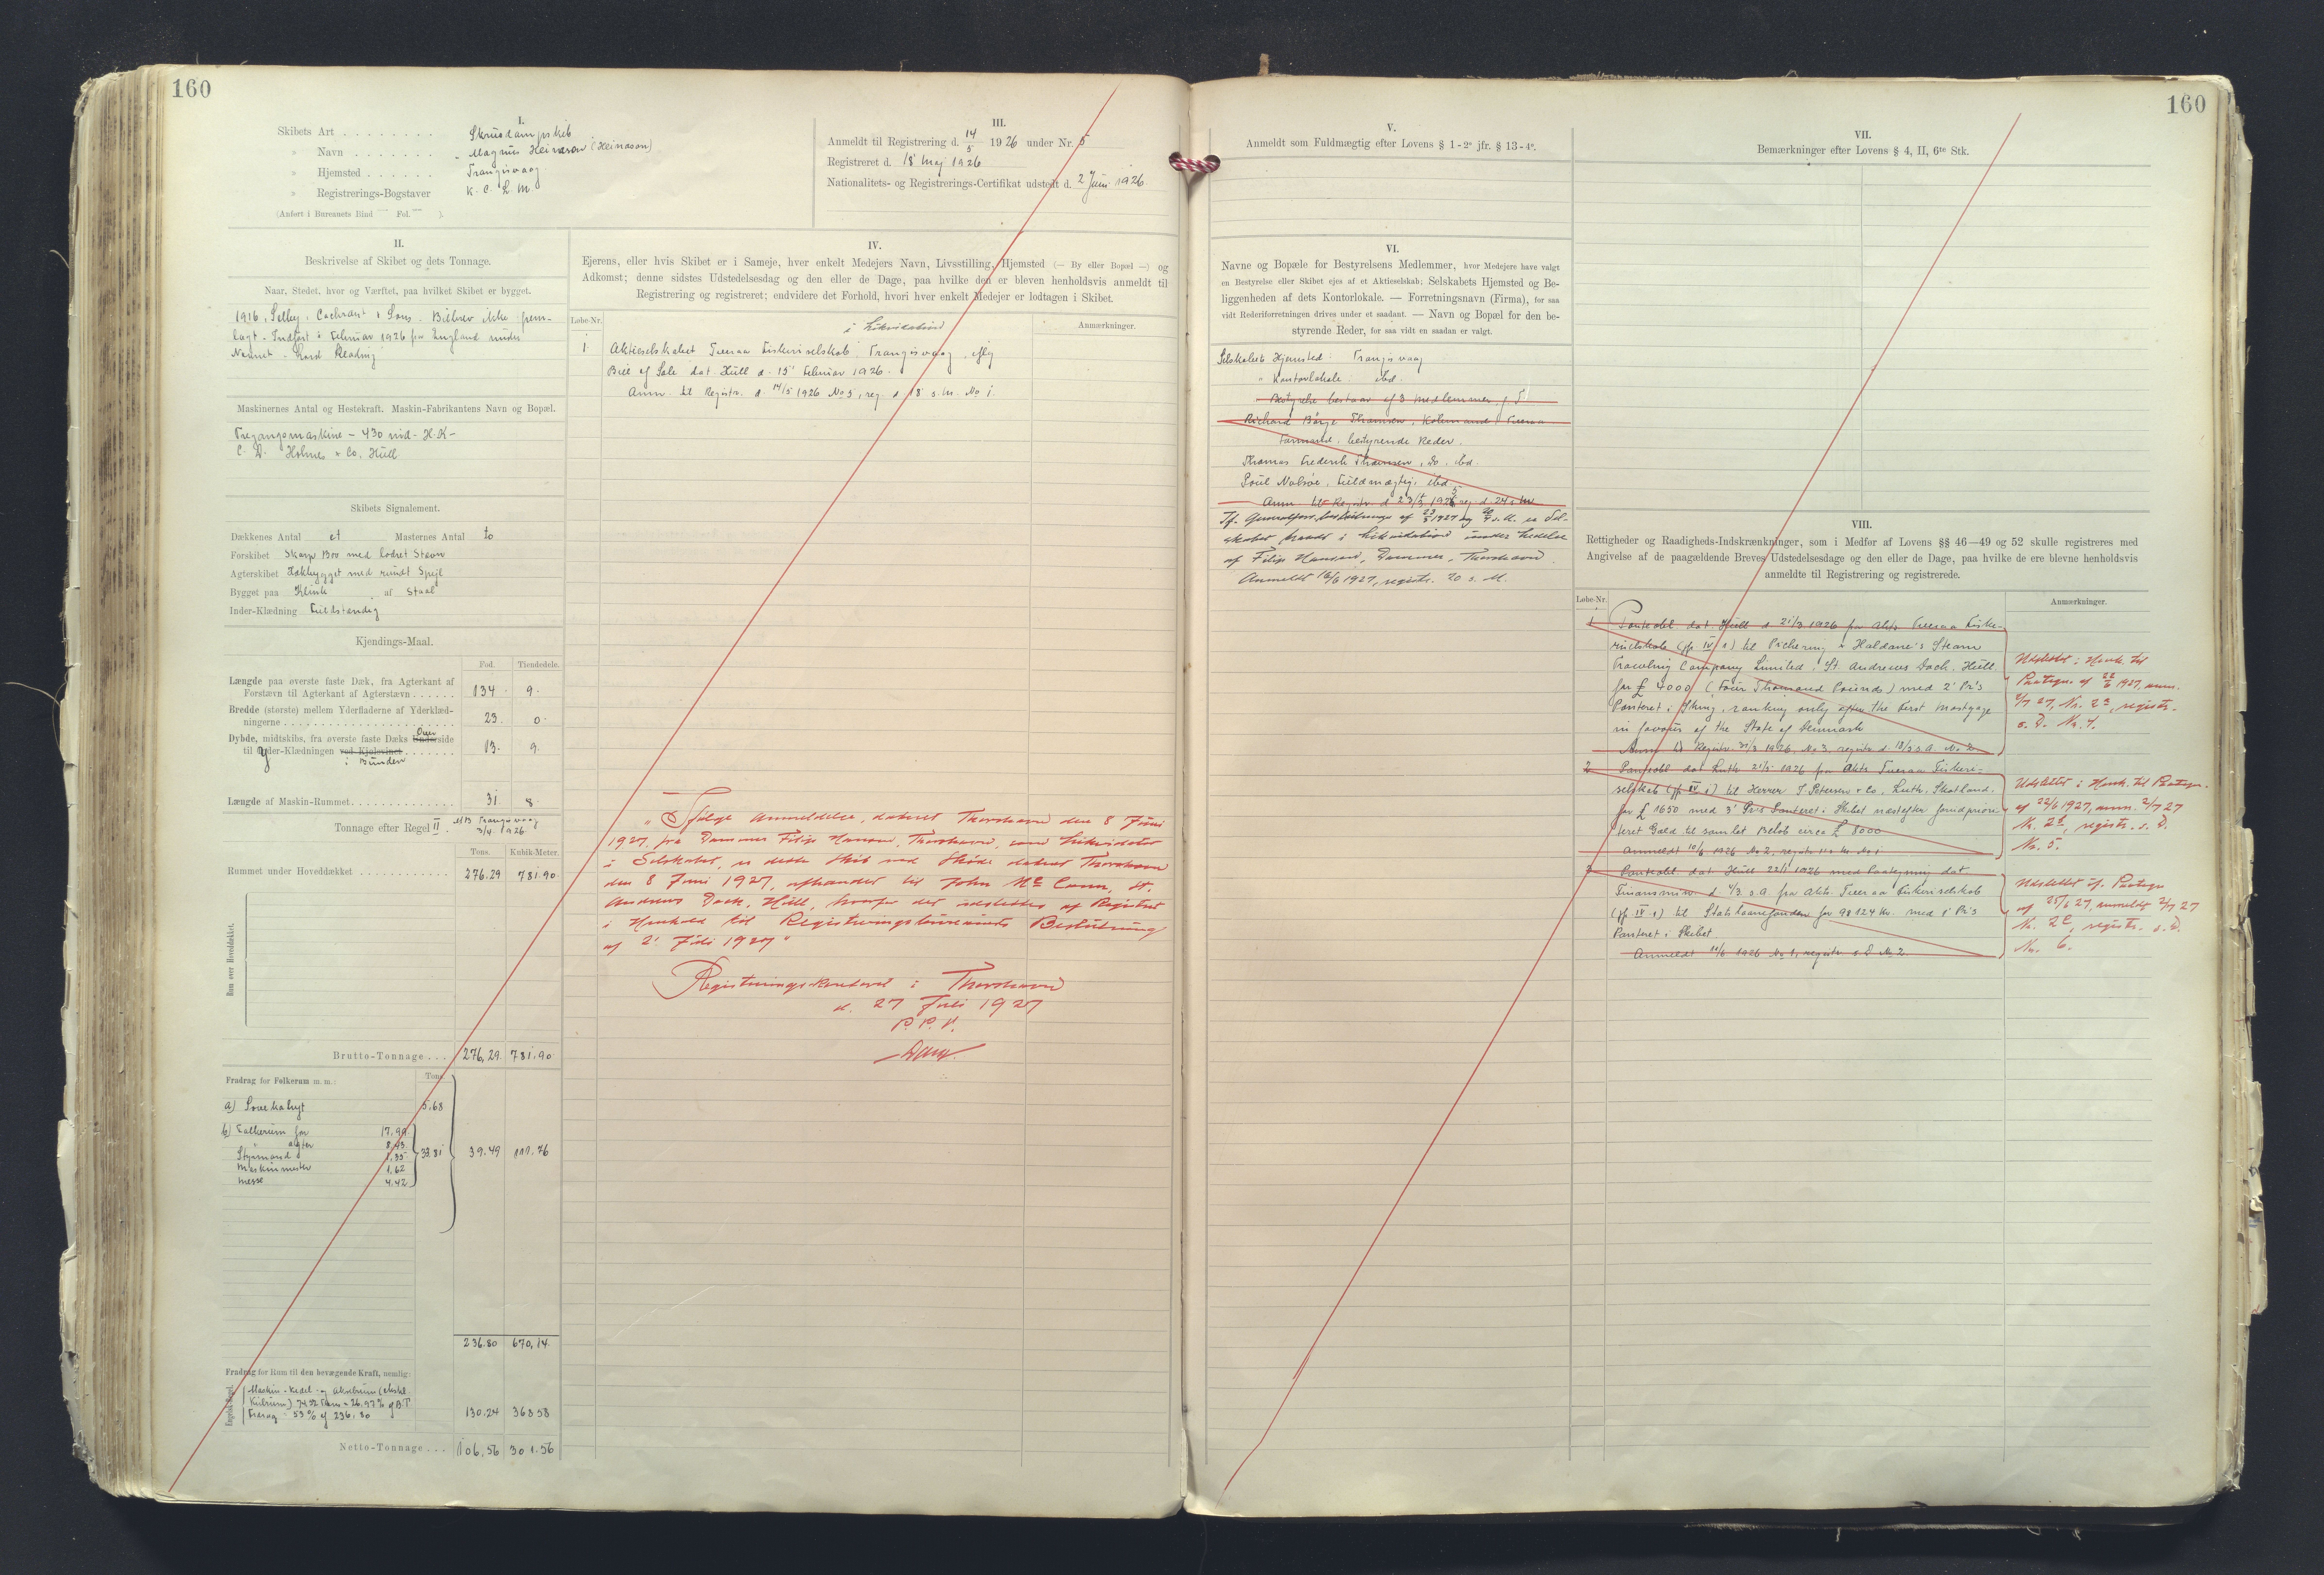 160
I.
Skibets Art . . . . . . . . Skruedampskib
» Navn . . . . . . . „ Magnus Heinason (Heinason)
» Hjemsted . . . . . . Trangisvaag
» Registrerings-Bogstaver K. C. L. M.
(Anført i Bureauets Bind — Fol. — ).
III.
Anmeldt til Registrering d. 14/5 1926 under Nr. 5
Registreret d. 18 Maj 1926
Nationalitets- og Registrerings-Certifikat udstedt d. 2 Juni 1926.
II.
Beskrivelse af Skibet og dets Tonnage.
Naar, Stedet, hvor og Værftet, paa hvilket Skibet er bygget.
1916, Selby, Cochrane & Sons. Bilbrev ikke frem-
lagt. Indført i Februar 1926 fra England under
Navnet „Lord Reading"
Maskinernes Antal og Hestekraft. Maskin-Fabrikantens Navn og Bopæl.
Tregangsmaskine – 430 ind. H.K –
C. D. Holmes & Co, Hull
Skibets Signalement.
Dækkenes Antal et Masternes Antal to
Forskibet Skarp Bov med lodret Stævn
Agterskibet Hækbygget med rundt Spejl
Bygget paa Klink af Staal
Inder-Klædning Fuldstændig
Kjendings-Maal.
Fod. Tiendedele.
Længde paa øverste faste Dæk, fra Agterkant af
Forstævn til Agterkant af Agterstævn . . . . . . 134. 9.
Bredde (største) mellem Yderfladerne af Yderklæd-
ningerne . . . . . . . . . . . . . . . . . . 23. 0.
Dybde, midtskibs, fra øverste faste Dæks Underside Over
til Yder-Klædningen ved Kjølsvinet . . . . . . 13. 9.
i Bunden
Længde af Maskin-Rummet . . . . . . . . . . . . . . 31. 8.
Tonnage efter Regel II. MB Trangisvaag
3/4 1926
Tons. Kubik-Meter.
Rummet under Hoveddækket . . . . . . . . . . . . 276.29 781.90.
Rum over Hoveddækket.
Brutto-Tonnage . . . 276,29. 781.90
Fradrag for Folkerum m. m.: Tons.
a) 5.68
b) Folkerum for 17.99
" agter 8.43
Styrmand 1,35
Maskinmester 1.62
Messe 4.42
33.81 39.49 111.76
236.80 670,14.
Fradrag for Rum til den bevægende Kraft, nemlig:
Engelsk Regel.
Maskin- Kedel- og Akselrum (ekskl.
Kulrum) 74.52 Tons = 26.97% af B.T
Fradrag 55% af 236,80 130.24 368 58
Netto-Tonnage . . . 106,56 301.56
IV.
Ejerens, eller hvis Skibet er i Sameje, hver enkelt Medejers Navn, Livsstilling, Hjemsted (— By eller Bopæl —) og
Adkomst; denne sidstes Udstedelsesdag og den eller de Dage, paa hvilke den er bleven henholdsvis anmeldt til
Registrering og registreret; endvidere det Forhold, hvori hver enkelt Medejer er lodtagen i Skibet.
Løbe-Nr. Anmærkninger.
i Likvidation
1. Aktieselskabet Tveraa Fiskeriselskab Trangisvaag, iflg
Bill of Sale dat. Hull d. 15' Februar 1926.
Anm. til Registr. d. 14/5 1926 No 5, reg. d. 18 s. M. No 1.
„Ifølge Anmeldelse, dateret Thorshavn den 8 Juni
1927, fra Dommer Filip Hansen, Thorshavn, som Likvidator
i Selskabet, er dette Skib ved Skøde dateret Thorshavn
den 8 Juni 1927, afhændet til John Mc Cann, St.
Andrews Dock, Hull, hvorfor det udslettes af Registret
i Henhold til Registreringsbureauets Beslutning
af 2' Juli 1927"
Registreringskontoret i Thorshavn
d. 27 Juli 1927
P. P. V.
160
V.
Anmeldt som Fuldmægtig efter Lovens § 1 - 2° jfr. § 13 - 4°.
VI.
Navne og Bopæle for Bestyrelsens Medlemmer, hvor Medejere have valgt
en Bestyrelse eller Skibet ejes af et Aktieselskab; Selskabets Hjemsted og Be-
liggenheden af dets Kontorlokale. — Forretningsnavn (Firma), for saa
vidt Rederiforretningen drives under et saadant. — Navn og Bopæl for den be-
styrende Reder, for saa vidt en saadan er valgt.
Selskabets Hjemsted: Trangisvaag
" Kontorlokale: ibd.
Bestyrelse bestaar af 3 Medlemmer, j. T
Richard Børge Thomsen, Købmand, Tveraa
Formand, bestyrende Reder.
Thomas Frederik Thomsen, Do, ibd.
Poul Nolsøe, Fuldmægtig, ibd
Anm. til Registr. d. 23/5 1926 reg. d. 24 s. M.
Jf. Generalfors. beslutninger af 23/3 1927 og 20/4 s. A. er Sel-
skabet traadt i Likvidation under Ledelse
af Filip Hansen, Dommer, Thorshavn.
Anmeldt 16/6 1927, registr. 20 s. M.
VII.
Bemærkninger efter Lovens § 4, II, 6te Stk.
VIII.
Rettigheder og Raadigheds-Indskrænkninger, som i Medfør af Lovens §§ 46—49 og 52 skulle registreres med
Angivelse af de paagældende Breves Udstedelsesdage og den eller de Dage, paa hvilke de ere blevne henholdsvis
anmeldte til Registrering og registrerede.
Løbe-Nr. Anmærkninger.
1. Panteobl. dat. Hull d. 21/3 1926 fra Akts Tveraa Fiske-
riselskab (jfr. IV 1) til Pickering & Haldane's Steam
Trawling Company Limited, St. Andrews Dock, Hull
for £ 4000 (Four Thousand Pounds) med 2' Pr's
Panteret i Skib, ranking only after the first Mortgage
in favour of the State of Denmark
Anm. til Registr. 31/3 1926, No 3, registr. d. 18/5 s. A. No 2.
Udslettet i Henh. til
Paategn. af 22/6 1927, anm.
2/7 27, Nr. 2 d, registr.
s. D. Nr. 4.
2. Panteobl. dat. Leith 21/5 1926 fra Akts Tveraa Fiskeri-
selskab (jfr. IV 1) til Herrer J. Petersen & Co, Leith, Skotland.
for £ 1650 med 3' Pr's Panteret i Skibet næstefter forudpriori-
teret Gæld til samlet Beløb circa £ 8000
Anmeldt 10/6 1926 No 2, registr. No 1
Udslettet i Henh. til Paategn.
af 22/6 1927, anm. 2/7 27
Nr. 2 f, registr. s. D.
Nr. 5.
3. Panteobl. dat. Hull 22/1 1926 med Paategning dat.
Finansmin. d. 4/3 s. A. fra Akts. Tveraa Fiskeriselskab
(jfr IV 1) til Statslaanefonden for 98 124 Kr. med 1' Pr's
Panteret i Skibet
Anmeldt 10/6 1926 No 1, registr. s. D No 2.
Udslettet if. Paategn
af 25/6 27, anmeldt 2/7 27
Nr. 2 e, registr. s. D.
Nr. 6.